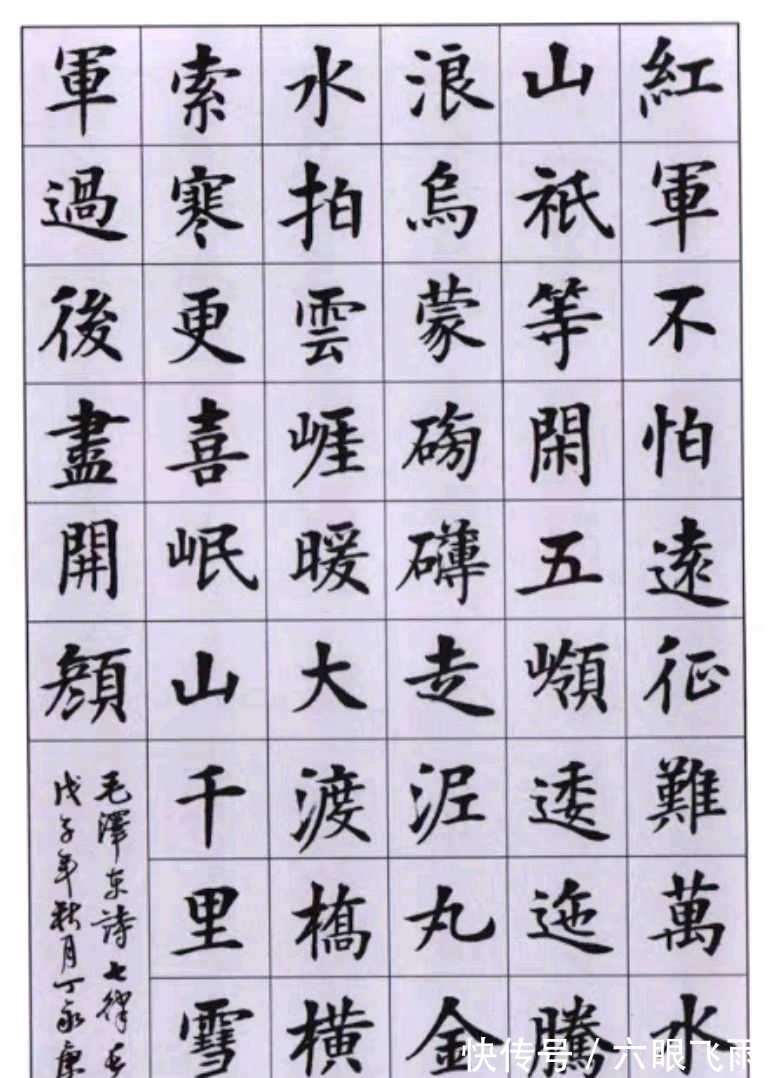 紅軍不怕遠征難萬水
山祇等閑五嶺逶迤騰
浪烏蒙磅礴走泥丸金
水拍雲崕暖大渡橋橫
索寒更喜岷山千里雪
軍過後盡開顏
毛澤东詩七律長
戊子年秋月丁永康
快传号 / 六眼飞雨